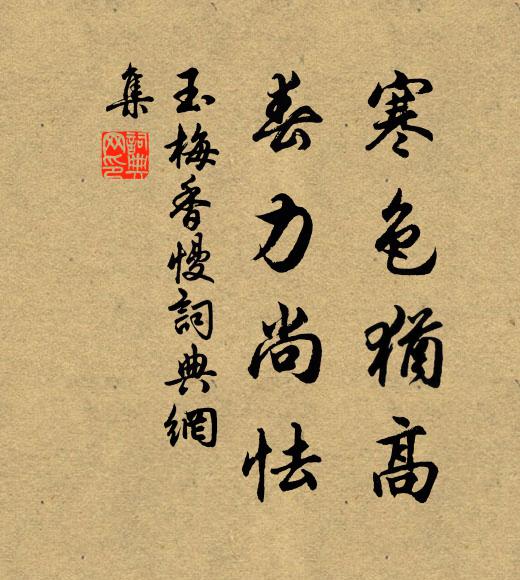 寒色猶高
春力尚怯
玉梅香慢詞典網
集
詞典網印